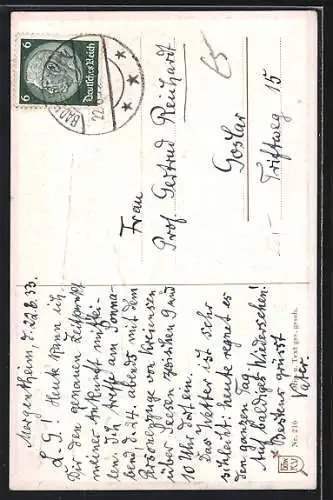 Mergentheim, d. 22.6.33.
L. G.! Heute kann ich
Dir den genauen Zeitpunkt
meiner Ankunft mittei-
len. Ich treffe am Sonna-
bend d. 24. abends mit dem
Personenzuge von Kreiensen
über Seesen zwischen 9 und
10 Uhr dort ein.
Das Wetter ist sehr
schlecht: heute regnet es
den ganzen Tag.
Auf baldiges Wiedersehen!
Bestens grüsst
Vater.
6
Deutsches Reich
6
BAD
22.6.
65
Frau
Prof. Gertrud Reinhardt
Goslar
Triftweg 15
Nr. 216
u. Text ges. gesch.